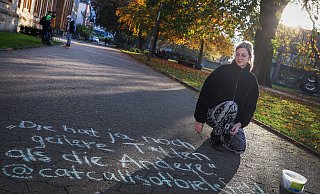 „Die hat ja noch
geilere T*tten
als die Andere"
@catcallsofbielefeld